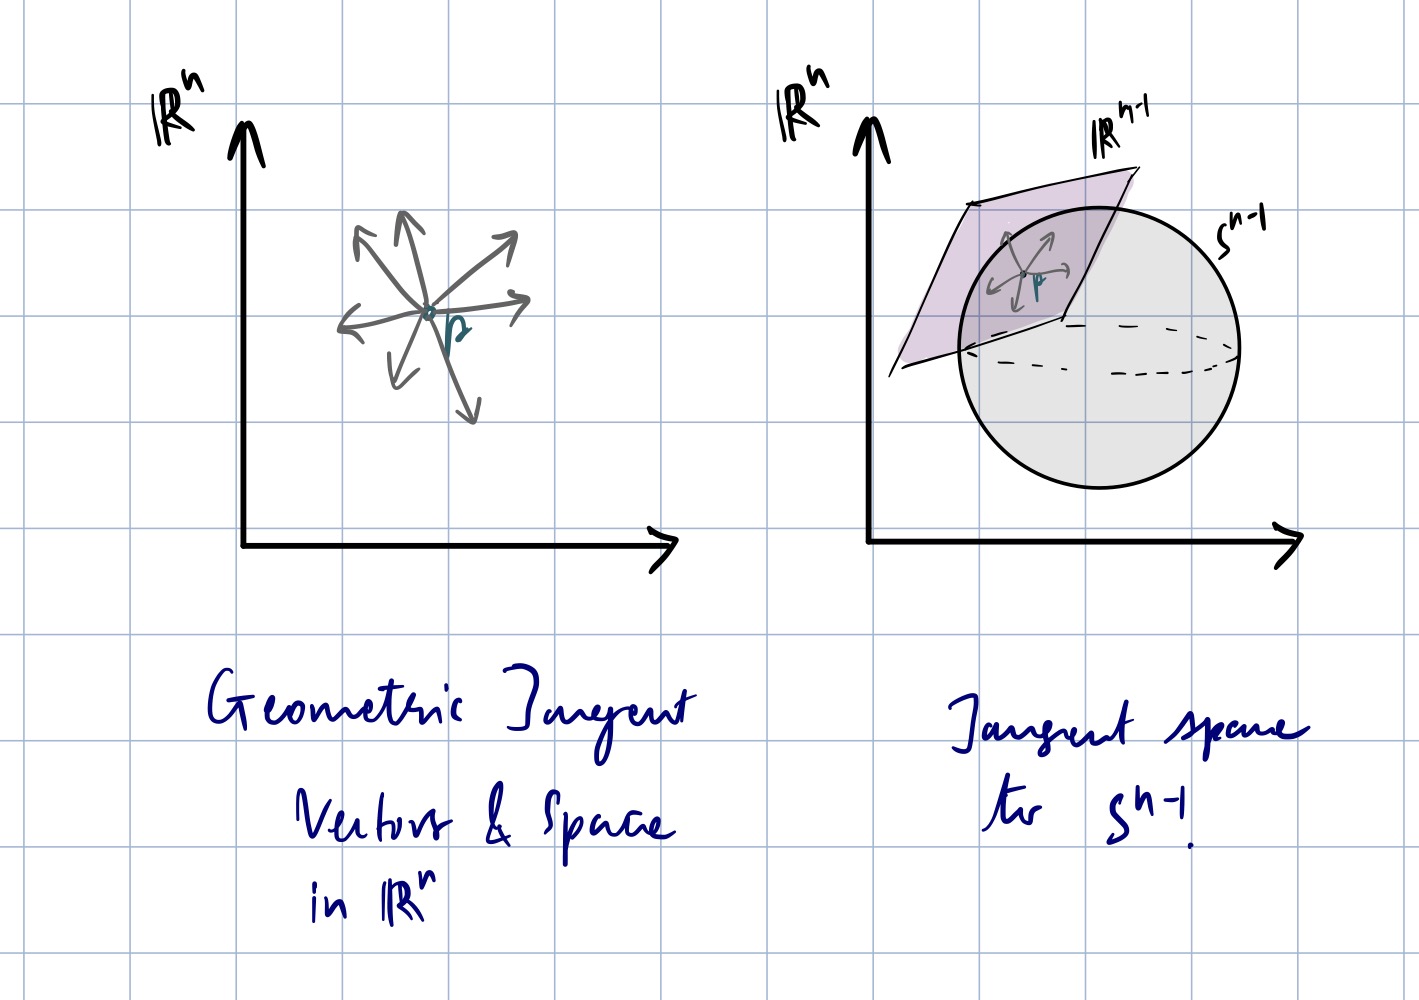 ℝⁿ
p
Geometric Tangent
Vectors & Space
in ℝⁿ
ℝⁿ
ℝⁿ⁻¹
Sⁿ⁻¹
p
Tangent space
to Sⁿ⁻¹.